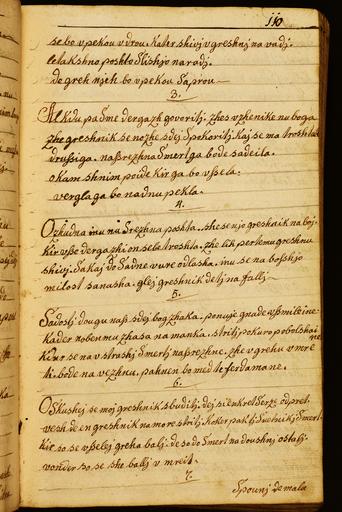 110
se bo v pekou v drou, kater shivj v greshnj navadj.
leta kshno poshto slishjo naradj.
de greh njih bo v pekou saprou
3.
Al kidu pa sme dergazh govoritj, zhes vzhenike nu boga
zhe greshnik se nozhe sdej spokoritj, kaj se ma troshtat
drusiga. nasrezhna smert ga bode sadeila.
okam shnim poide kir ga bo vsela.
vergla ga bo na dnu pekla.
4.
O zhudna inu nasrezhna poshta. she se ujo greshnik na boj.
kir vse dergazhi on sela troshta. zhe lih per temu greshnu
shivj. sakaj do sadne vure odlasha. inu se na boshjo
milost sanasha. glej greshnik de tj na fallj
5.
Sadostj dougu nas sdej bog zhaka. ponuje gnade usmilene
kader nobenmu zhasa na manka. strilj po kuro pobolshaine
kir se na vstrashj smertj nasrezhne. zhe v grehu v mere
tj. bode na vezhnu. pahnen bo med te ferdamane.
6.
O skushej se moj greshnik sbuditj. dej sienkret serze odpret
vezh de en greshnik na more striti,
kir so vselej greha balj. de so do smert na doushnj ostalj.
vonder so se she ballj v mreit.
7.
Spounj de mala